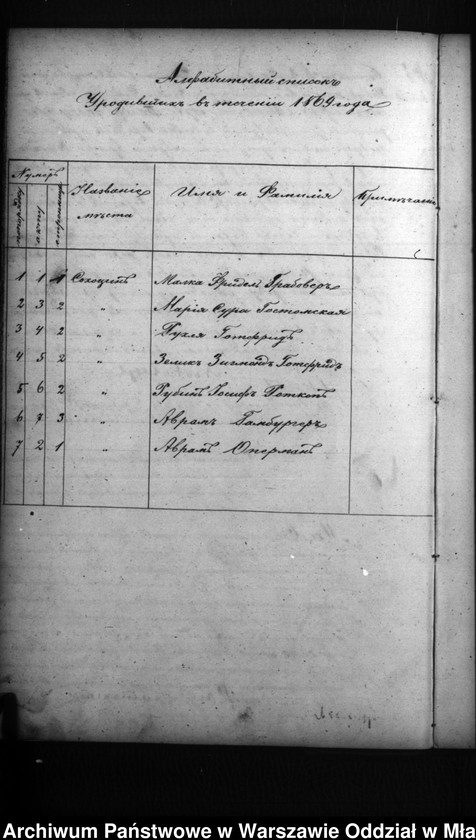 Алфабитный списокъ
Уродившихъ въ теченіи 1869 года
Нумеръ
Названіе мѣста
Имя и Фамилія
1 1 1 Сохоцинъ Малка Фридель Грабоверъ
2 3 2 " Марія Сура Гостомская
3 4 2 " Рухля Готфридъ
4 5 2 " Зелик Зигмандъ Готфридъ
5 6 2 " Рубинъ Іосифъ
6 7 3 " Аврамъ Гамбургеръ
7 2 1 " Аврамъ Оперманъ
Archiwum Państwowe w Warszawie Oddział w Mła